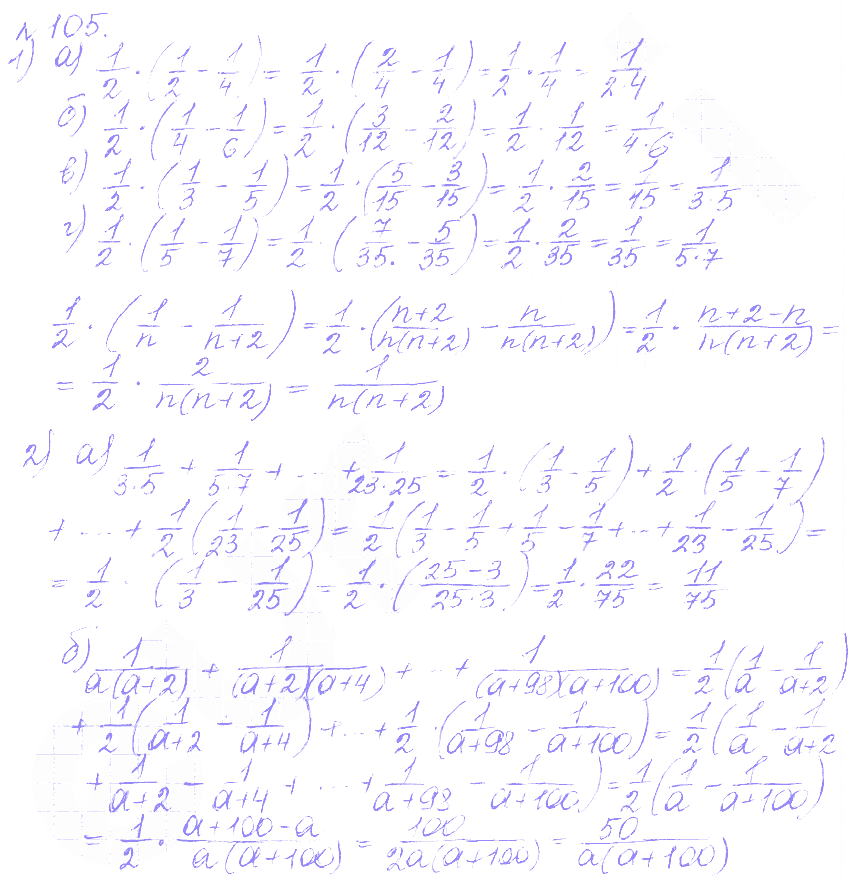 № 105.
1) а) 1/2 · (1/2 − 1/4) = 1/2 · (2/4 − 1/4) = 1/2 · 1/4 = 1/(2·4)
б) 1/2 · (1/4 − 1/6) = 1/2 · (3/12 − 2/12) = 1/2 · 1/12 = 1/(4·6)
в) 1/2 · (1/3 − 1/5) = 1/2 · (5/15 − 3/15) = 1/2 · 2/15 = 1/15 = 1/(3·5)
г) 1/2 · (1/5 − 1/7) = 1/2 · (7/35 − 5/35) = 1/2 · 2/35 = 1/35 = 1/(5·7)
1/2 · (1/n − 1/(n+2)) = 1/2 · ((n+2)/(n(n+2)) − n/(n(n+2))) = 1/2 · (n+2−n)/(n(n+2)) =
= 1/2 · 2/(n(n+2)) = 1/(n(n+2))
2) а) 1/(3·5) + 1/(5·7) + ... + 1/(23·25) = 1/2 · (1/3 − 1/5) + 1/2 · (1/5 − 1/7)
+ ... + 1/2 (1/23 − 1/25) = 1/2 (1/3 − 1/5 + 1/5 − 1/7 + ... + 1/23 − 1/25) =
= 1/2 · (1/3 − 1/25) = 1/2 · ((25−3)/(25·3)) = 1/2 · 22/75 = 11/75
б) 1/(a(a+2)) + 1/((a+2)(a+4)) + ... + 1/((a+98)(a+100)) = 1/2 (1/a − 1/(a+2))
+ 1/2 (1/(a+2) − 1/(a+4)) + ... + 1/2 · (1/(a+98) − 1/(a+100)) = 1/2 (1/a − 1/(a+2)
+ 1/(a+2) − 1/(a+4) + ... + 1/(a+98) − 1/(a+100)) = 1/2 (1/a − 1/(a+100))
= 1/2 · (a+100−a)/(a(a+100)) = 100/(2a(a+100)) = 50/(a(a+100))